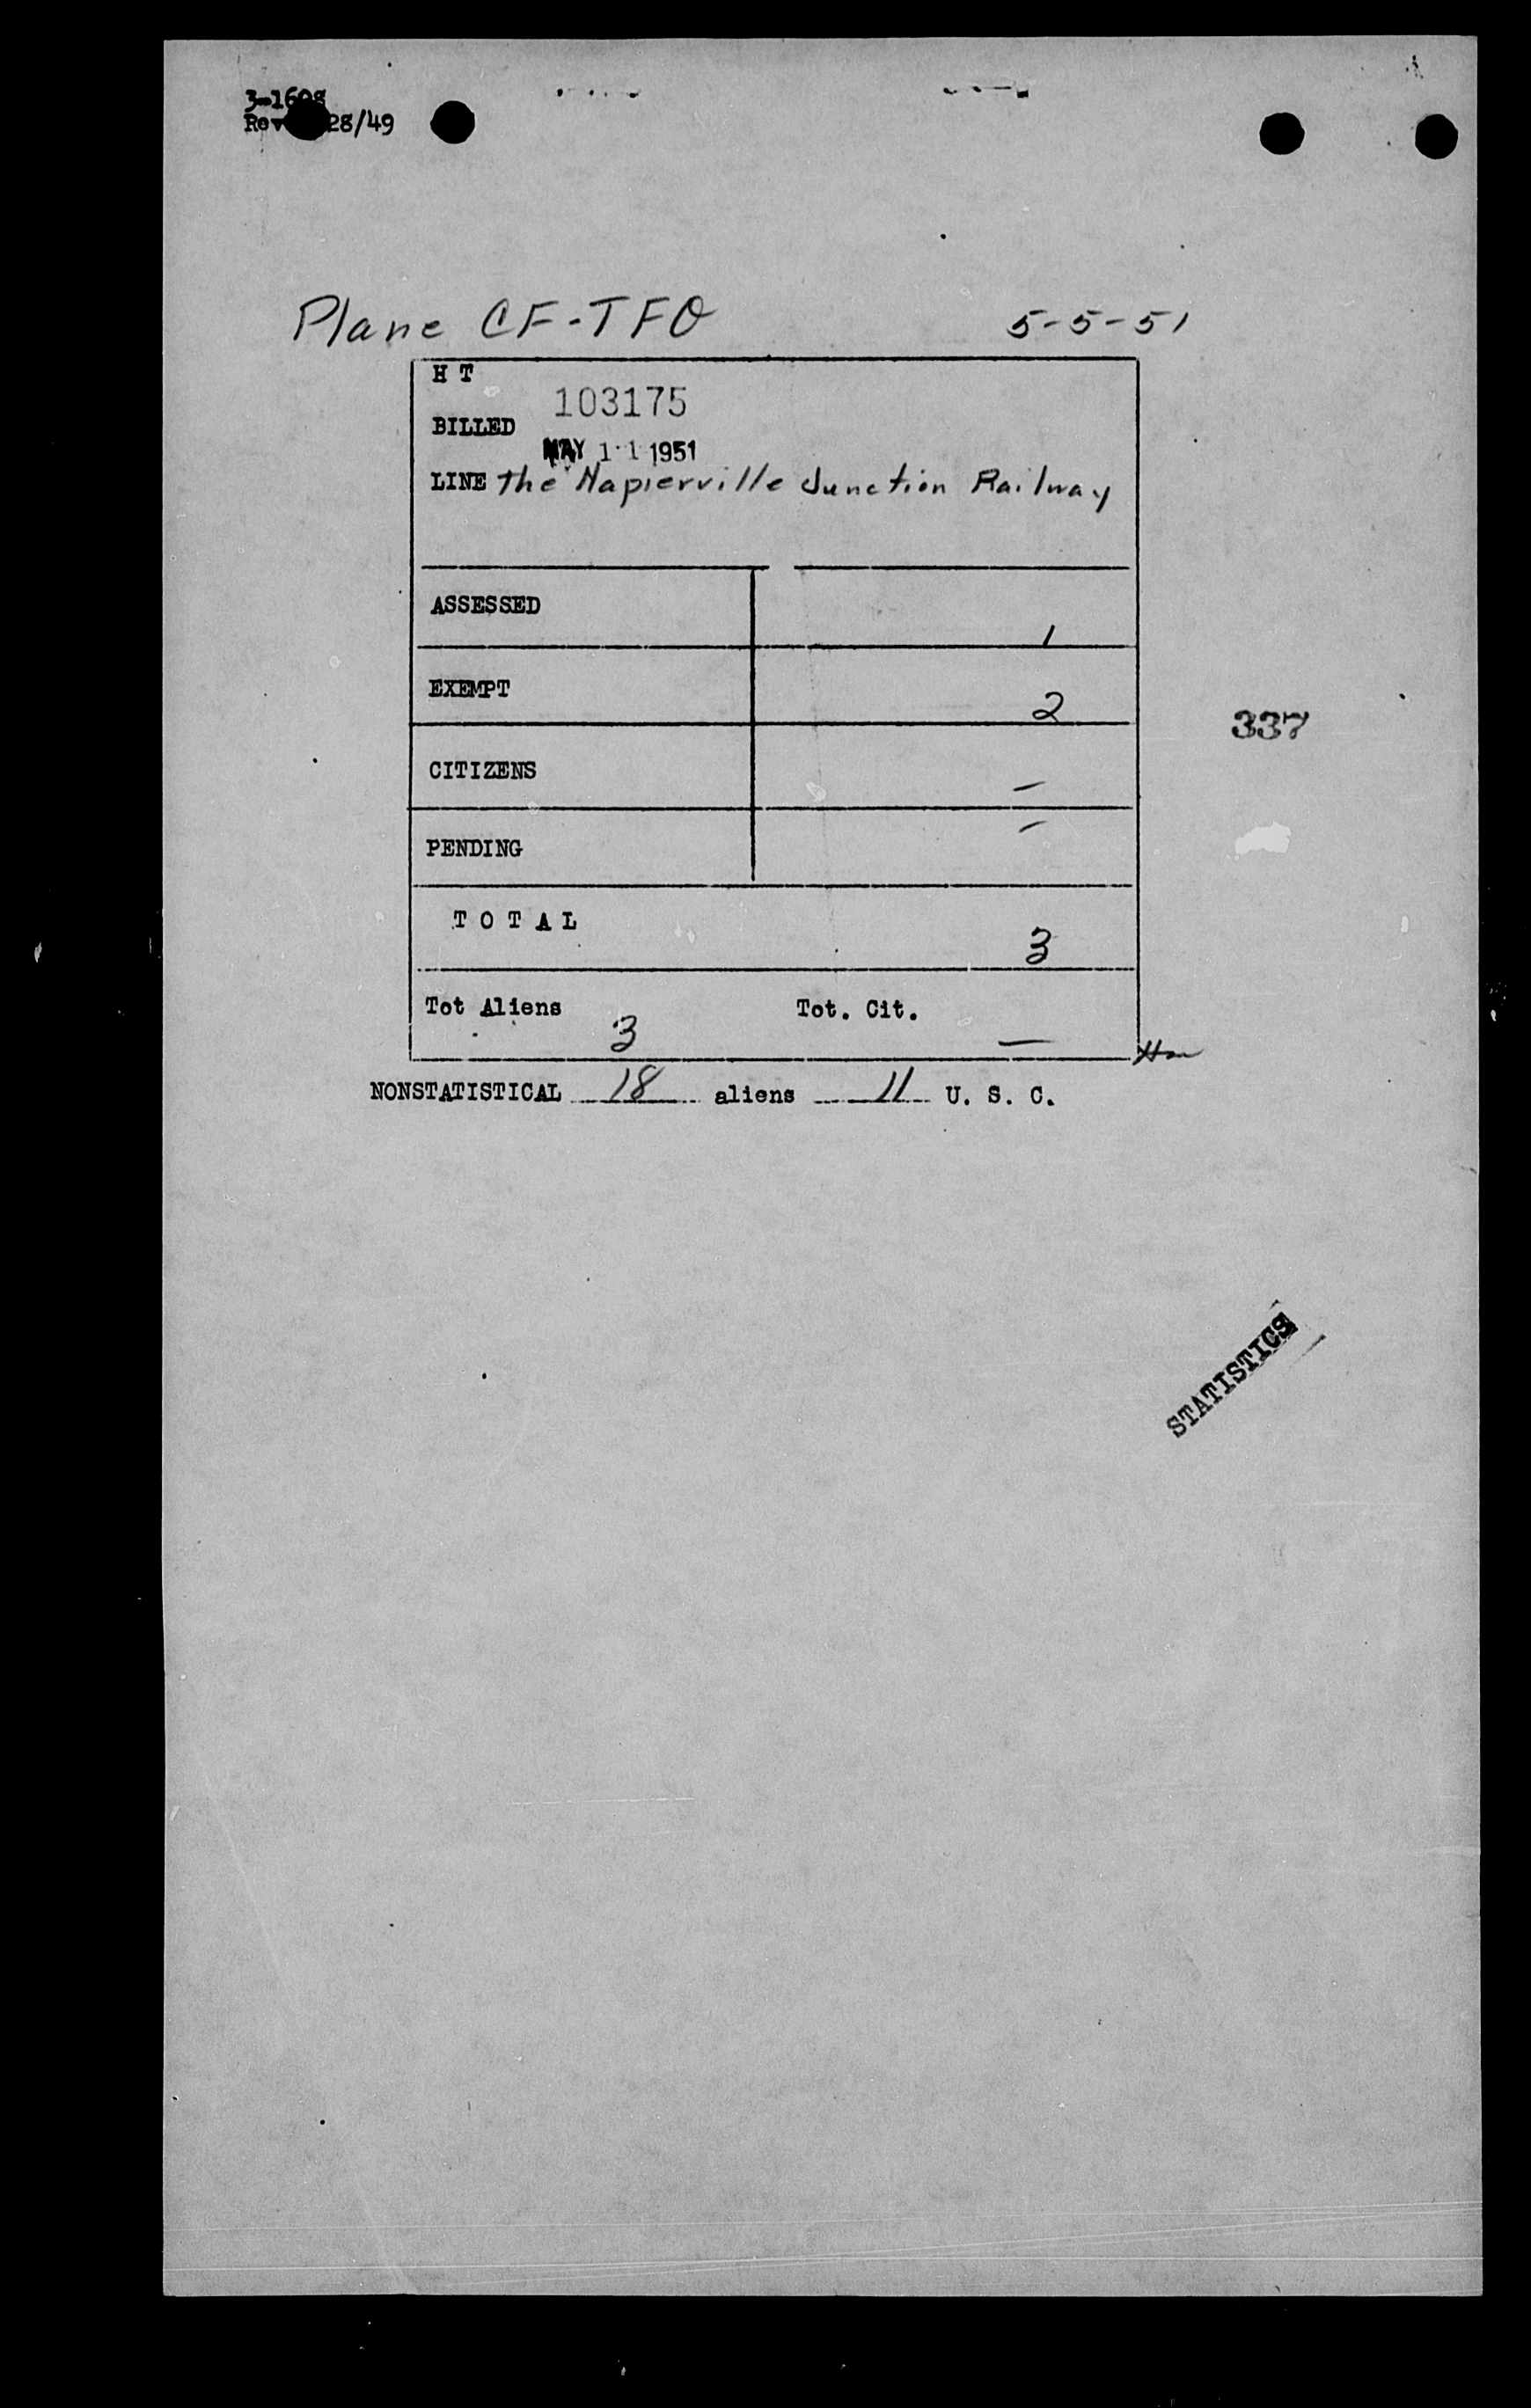 3-1608
Rev 28/49
Plane CF-TFO 5-5-51
H T
103175
BILLED
MAY 11 1951
LINE The Napierville Junction Railway
ASSESSED 1
EXEMPT 2
337
CITIZENS –
PENDING –
T O T A L 3
Tot Aliens 3 Tot. Cit. –
NONSTATISTICAL 18 aliens 11 U. S. C.
STATISTICS